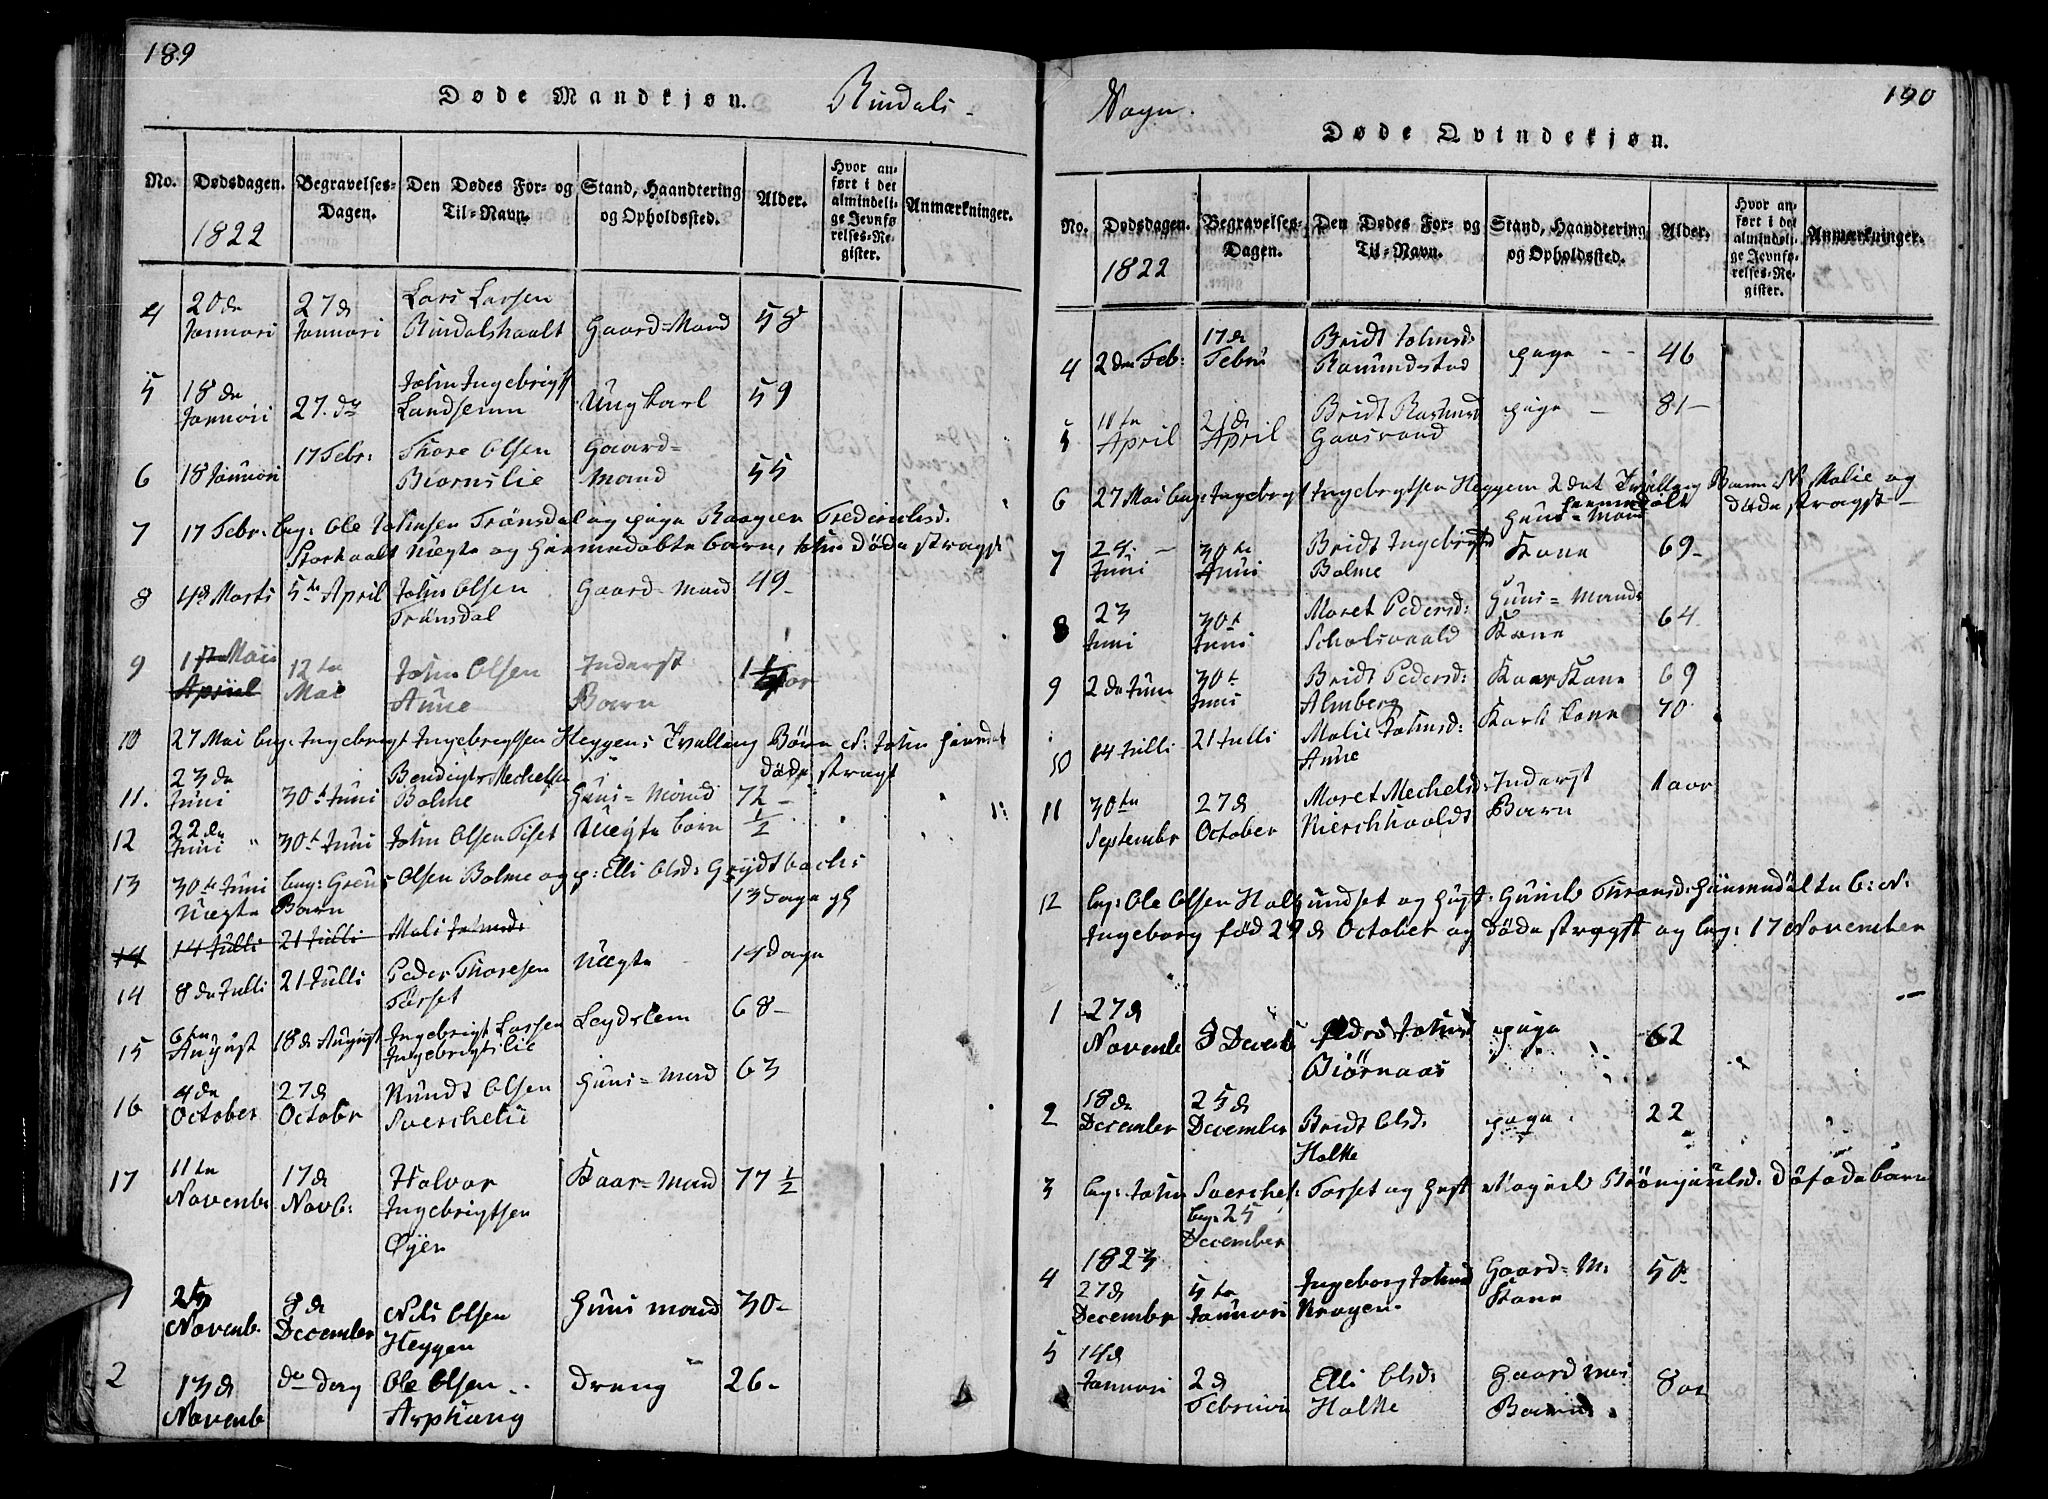 189
Døde Mandkjøn.
Rindals
No.
Dødsdagen.
Begravelses-
Dagen.
Den Dødes For- og
Til-Navn.
Stand, Haandtering
og Opholdssted.
Alder.
Hvor an-
ført i det
almindeli-
ge Jevnfø
relses-Re-
gister.
Anmærkninger.
1822
4
20de
Januari
27d
Januari
Lars Larsen
Rindalshaalt
Gaard-Mand
58
5
18de
Januari
27. do
John Ingebrigts
Landsemm
Ungkarl
59
6
18 Januari
17 Febr:
Thore Olsen
Biørnslie
Gaard-
Mand
55
7
17 Febr. beg: Ole Johnsen Trønsdal og pige
Storhaalt Uægte og hiemmedøbte barn, John døde stragst
8
4d Marts
5te April
John Olsen
Trønsdal
Gaard-Mand
49-
9
1ste Mai
April
12te
Mai
John Olsen
Aune
Inderst
Barn
10
27 Mai beg: Ingebrigt Ingebrigtsen Heggens Tvilling Børn N: John
døde stragst
11.
23de
Juni
30t Juni
Bendigt Mechelsen
Bolme
Huus-Mand
72-
12
22de
Juni "
30t Juni
John Olsen Tiset
Uægte barn
1/2
13
30te Juni beg: Olsen Bolme og p: Elli Olsd: Grytbachs
Uægte Barn
13 Dage gl
14
14 Julli
21 Julli
Mali Johnsd:
14
8de Julli
21 Julli
Peder Thoresen
Tørset
Uægte
14 Dage
15
6te
August
18d August
Ingebrigt Larsen
Ingebrigtslie
Legdslem
68-
16
4de
October
27d
Octobr
Knudt Olsen
Sverchelie
Huus-Mand
63
17
11te
Novembr
17d
Novb:
Halvor
Ingebrigtsen
Øyen
Kaar-Mand
77 1/2
1
25
Novemb.
8de
December
Nils Olsen
Heggen
Huus mand
30-
2
13d
Novemb
do Dag
Ole Olsen
Asphaug
Dreng
26-
190
Sogn.
Døde Qvindekjøn.
No.
Dødsdagen.
Begravelses-
Dagen.
Den Dødes For- og
Til-Navn.
Stand, Haandtering
og Opholdssted.
Alder.
Hvor an-
ført i det
almindeli-
ge Jevnfø-
relses-Re-
gister.
Anmærkninger.
1822
4
2den Feb:
17d
Febru
Bridt Johnsd:
Romundstad
pige
46
5
11te
April
21d
April
Bridt Rasmusd
Gaasvand
pige
81-
6
27 Mai beg: Ingebrigt Ingebrigtsen Heggem 2det Tvilling Barn N: Malie og
hiemmedøbt døde stragst
7
24.
Juni
30te
Juni
Bridt Ingebrigtsd
Bolme
Huus-Mand
Kone
69-
8
23
Juni
30t
Juni
Moret Pedersd:
Scholsvaald
Huus-Mands
Kone
64
9
2de Juni
30t
Juni
Bridt Pedersd:
Almberg
Kaar Kone
69
10
14 Julli
21 Julli
Malie Johnsd:
Aune
Kone
70
11
30te
Septembr
27d
October
Moret Mechelsd
Kierchhvolds
Inderst
Barn
1 aar
12
beg: Ole Olsen Halgundset og Hust: Gunild hiemmedøbte b: N:
Ingeborg fød 27d October og døde stragst og beg: 17 November
1
27d
Novemb
8 Decemb
Johnsd
Biørnaas
pige
62
2
18de
December
25d
December
Bridt Olsd:
Holte
pige
22
3
beg: John Sverches: Tørset og Hust Magnild Børingiulsd: døfødde barn
beg: 25
December
1823
4
27d
Decembr
5te
Januari
Ingeborg Johnsd
Kragen.
Gaard-M:
Kone
50-
5
14d
Januari
2d
Februari
Elli Olsd:
Holte
Gaard mns
Barn